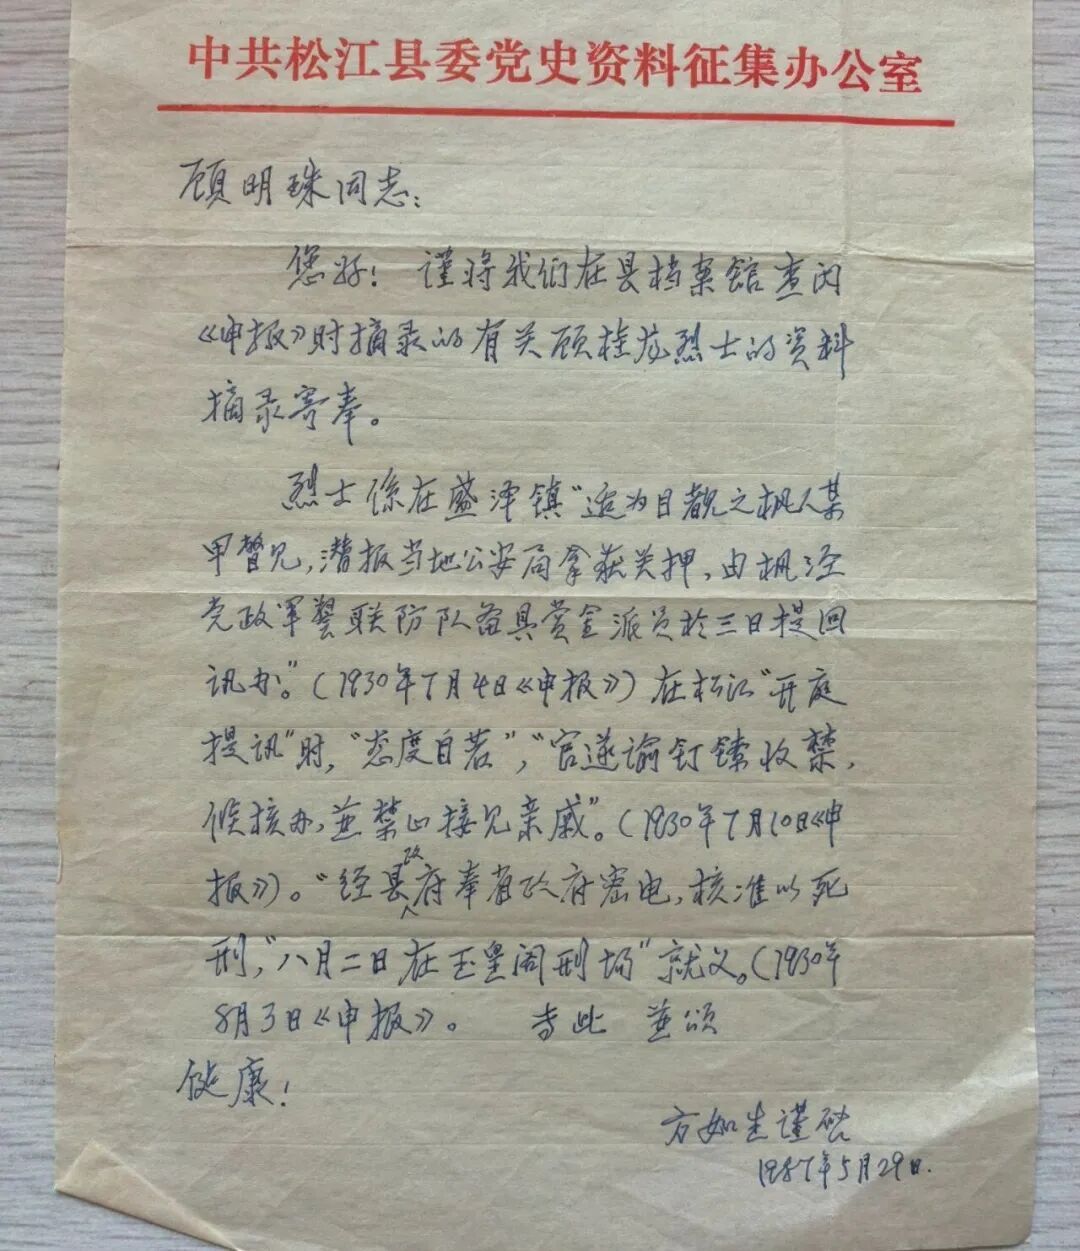 中共松江县委党史资料征集办公室
顾明珠同志：
您好！谨将我们在县档案馆查阅
《申报》时摘录的有关顾桂龙烈士的资料
摘录寄奉。
烈士係在盛泽镇“适为目覩之枫人某
甲瞥见，潜报当地公安局拿获关押，由枫泾
党政军警联防队备具赏金派员於三日提回
讯办”。（1930年7月4日《申报》）在松江“开庭
提讯”时，“态度自若”，“官遂谕钉镣收禁，
候核办，並禁止接见亲戚”。（1930年7月10日《申
报》）。“经县政府奉省政府密电，核准以死
刑，”八月二日在玉皇阁刑场”就义。（1930年
8月3日《申报》。 专此 並颂
健康！
方如生谨启
1987年5月29日.